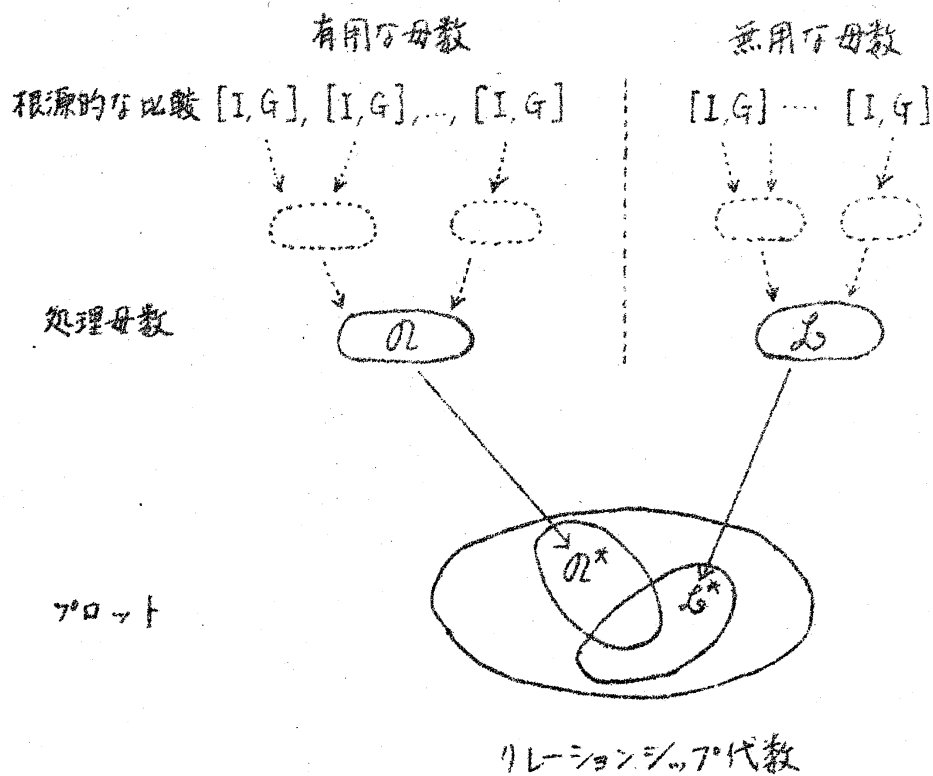 有用な母数 無用な母数
根源的な比較 [I,G], [I,G],..., [I,G] [I,G] ···· [I,G]
処理母数 𝒩 ℒ
𝒩* ℒ*
プロット
リレーションシップ代数